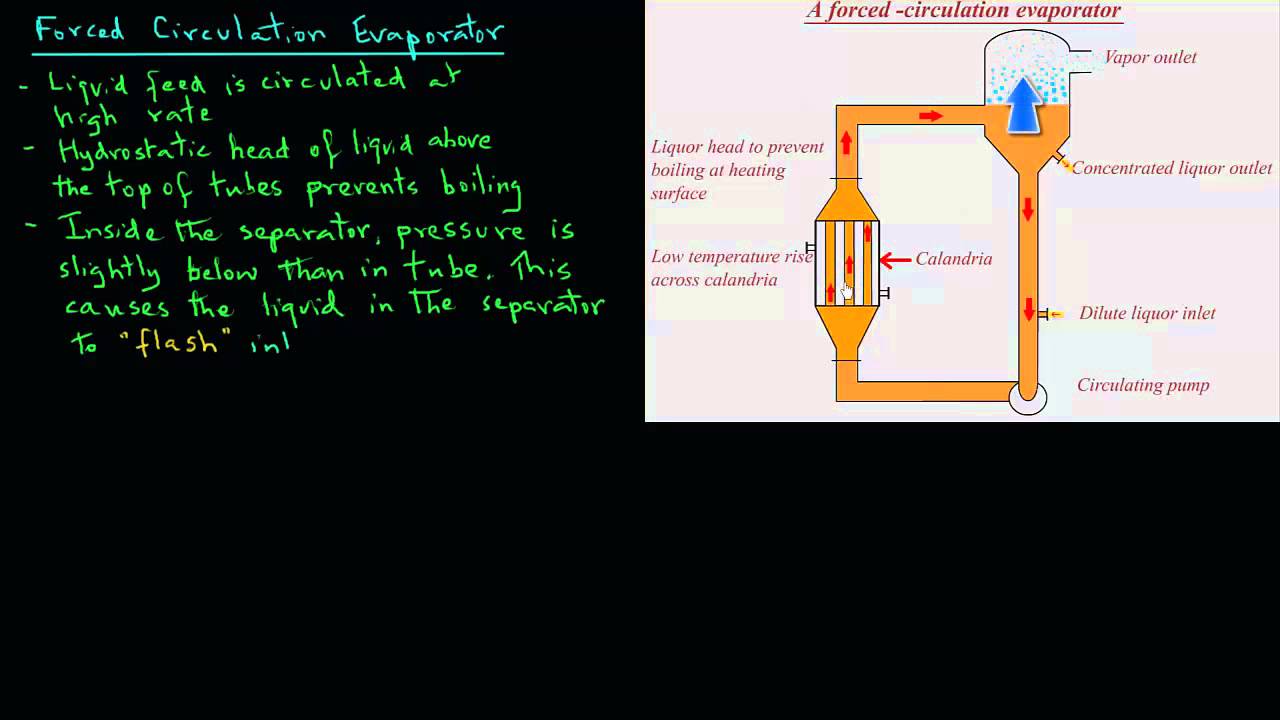 Forced Circulation Evaporator
- Liquid feed is circulated at
high rate
- Hydrostatic head of liquid above
the top of tubes prevents boiling
- Inside the separator, pressure is
slightly below than in tube. This
causes the liquid in the separator
to "flash" int
A forced -circulation evaporator
Vapor outlet
Liquor head to prevent
boiling at heating
surface
Concentrated liquor outlet
Low temperature rise
across calandria
Calandria
Dilute liquor inlet
Circulating pump